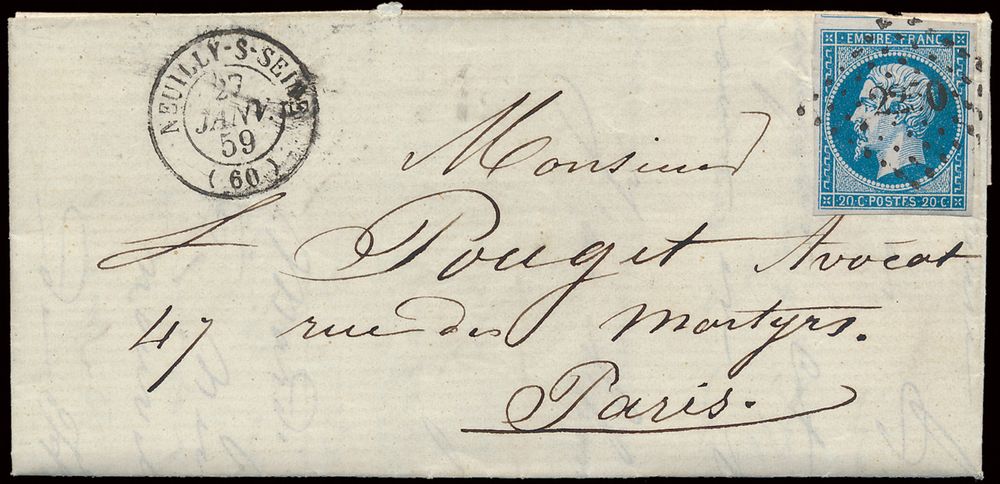 NEUILLY-S-SEINE
27
JANV.
59
(60)
EMPIRE FRANC
22 0
20 C POSTES 20 C
Monsieur
Pouget Avocat
47 rue des Martyrs.
Paris.